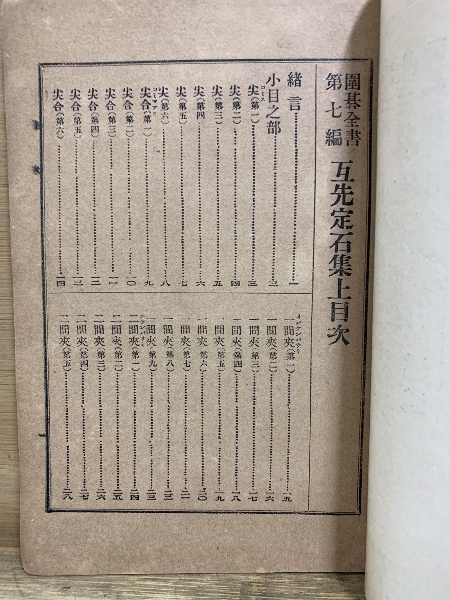 圍碁全書
第七編
互先定石集上目次
緒言……一
小目之部……二
尖(第一)……三
尖(第二)……四
尖(第三)……五
尖(第四)……六
尖(第五)……七
尖(第六)……八
尖合(第一)……九
尖合(第二)……一〇
尖合(第三)……一一
尖合(第四)……一二
尖合(第五)……一三
尖合(第六)……一四
一間夾(第一)……一五
一間夾(第二)……一六
一間夾(第三)……一七
一間夾(第四)……一八
一間夾(第五)……一九
一間夾(第六)……二〇
一間夾(第七)……二一
一間夾(第八)……二二
一間夾(第九)……二三
二間夾(第一)……二四
二間夾(第二)……二五
二間夾(第三)……二六
二間夾(第四)……二七
二間夾(第五)……二八